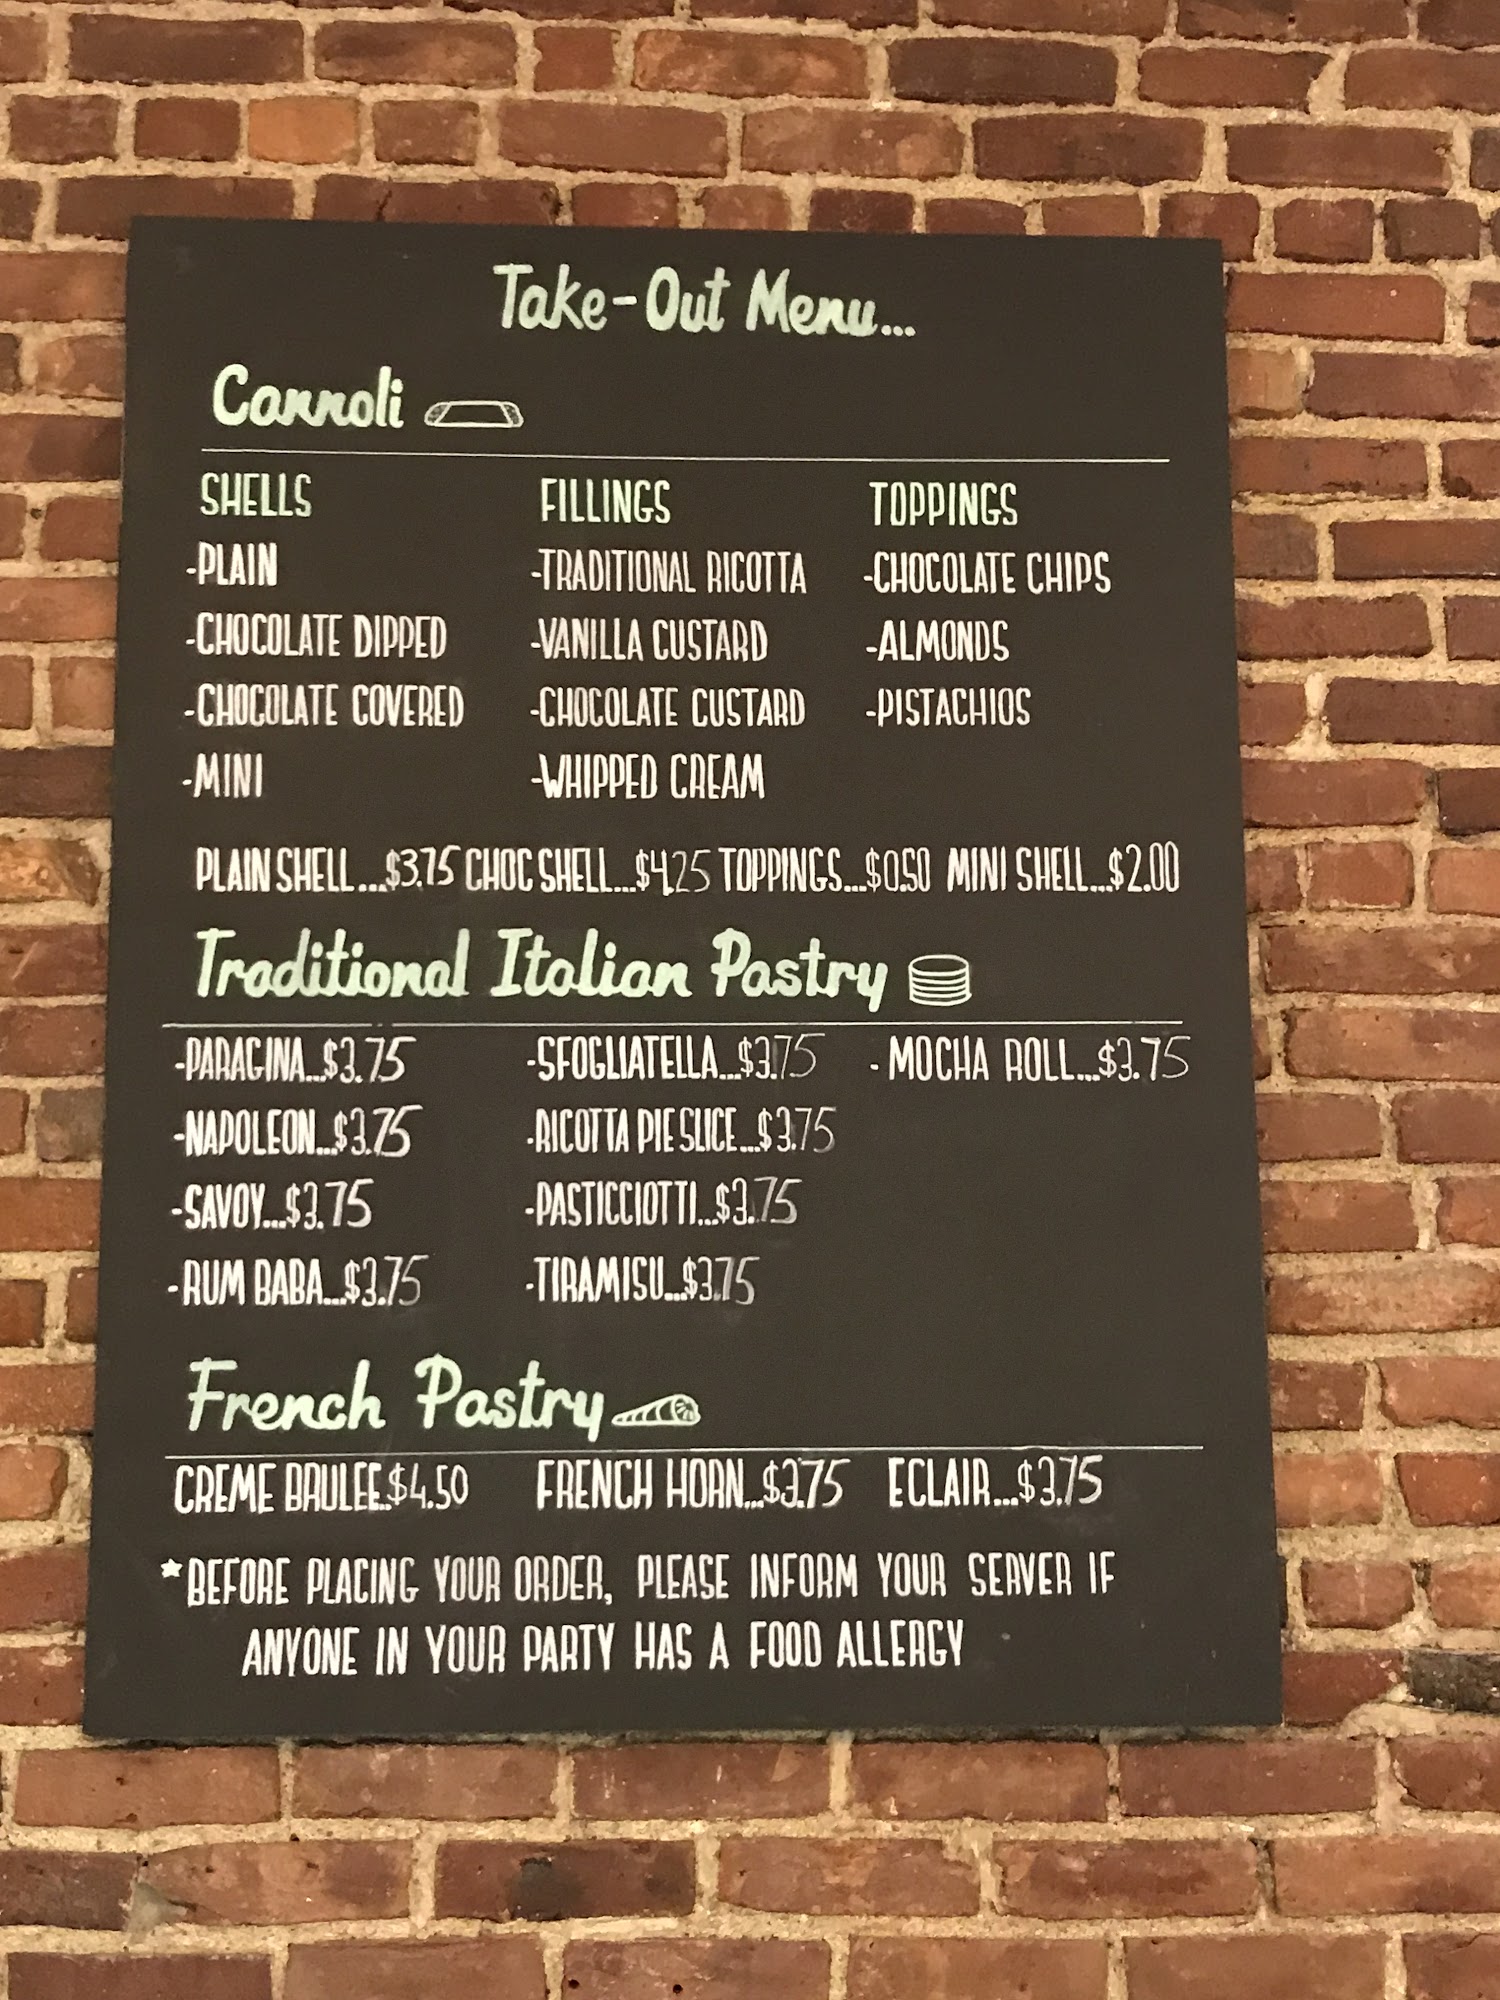 Take-Out Menu...
Cannoli
SHELLS FILLINGS TOPPINGS
-PLAIN -TRADITIONAL RICOTTA -CHOCOLATE CHIPS
-CHOCOLATE DIPPED -VANILLA CUSTARD -ALMONDS
-CHOCOLATE COVERED -CHOCOLATE CUSTARD -PISTACHIOS
-MINI -WHIPPED CREAM
PLAIN SHELL...$3.75 CHOC SHELL...$4.25 TOPPINGS...$0.50 MINI SHELL...$2.00
Traditional Italian Pastry
-PARAGINA...$3.75 -SFOGLIATELLA...$3.75 -MOCHA ROLL...$3.75
-NAPOLEON...$3.75 -RICOTTA PIE SLICE...$3.75
-SAVOY...$3.75 -PASTICCIOTTI...$3.75
-RUM BABA...$3.75 -TIRAMISU...$3.75
French Pastry
CREME BRULEE..$4.50 FRENCH HORN...$3.75 ECLAIR...$3.75
*BEFORE PLACING YOUR ORDER, PLEASE INFORM YOUR SERVER IF
ANYONE IN YOUR PARTY HAS A FOOD ALLERGY